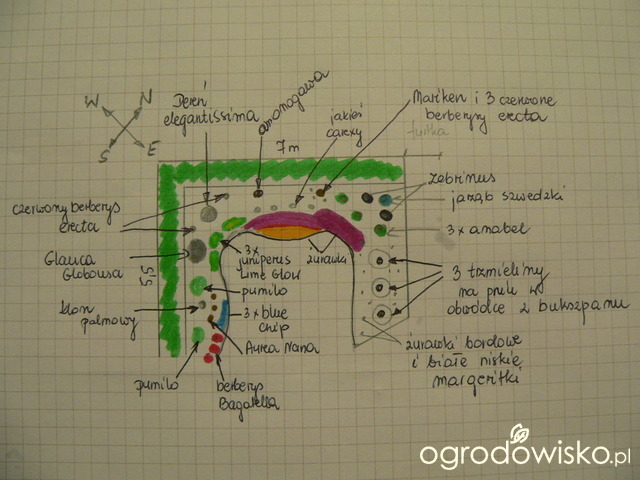 W
N
S
E
Dereń
elegantissima
amanogawa
jakieś
carexy
Mariken i 3 czerwone
berberysy erecta
furtka
7m
czerwony berberys
erecta
Glauca
Globousa
5,5
klon
palmowy
pumilo
3x
juniperus
Lime Glow
pumilo
3x blue
chip
Aurea Nana
berberys
Bagatella
żurawki
zebrinus
jarząb szwedzki
3x anabel
3 trzmieliny
na pniu w
obwódce z bukszpanu
żurawki bordowe
i białe niskie
margeritki
ogrodowisko.pl